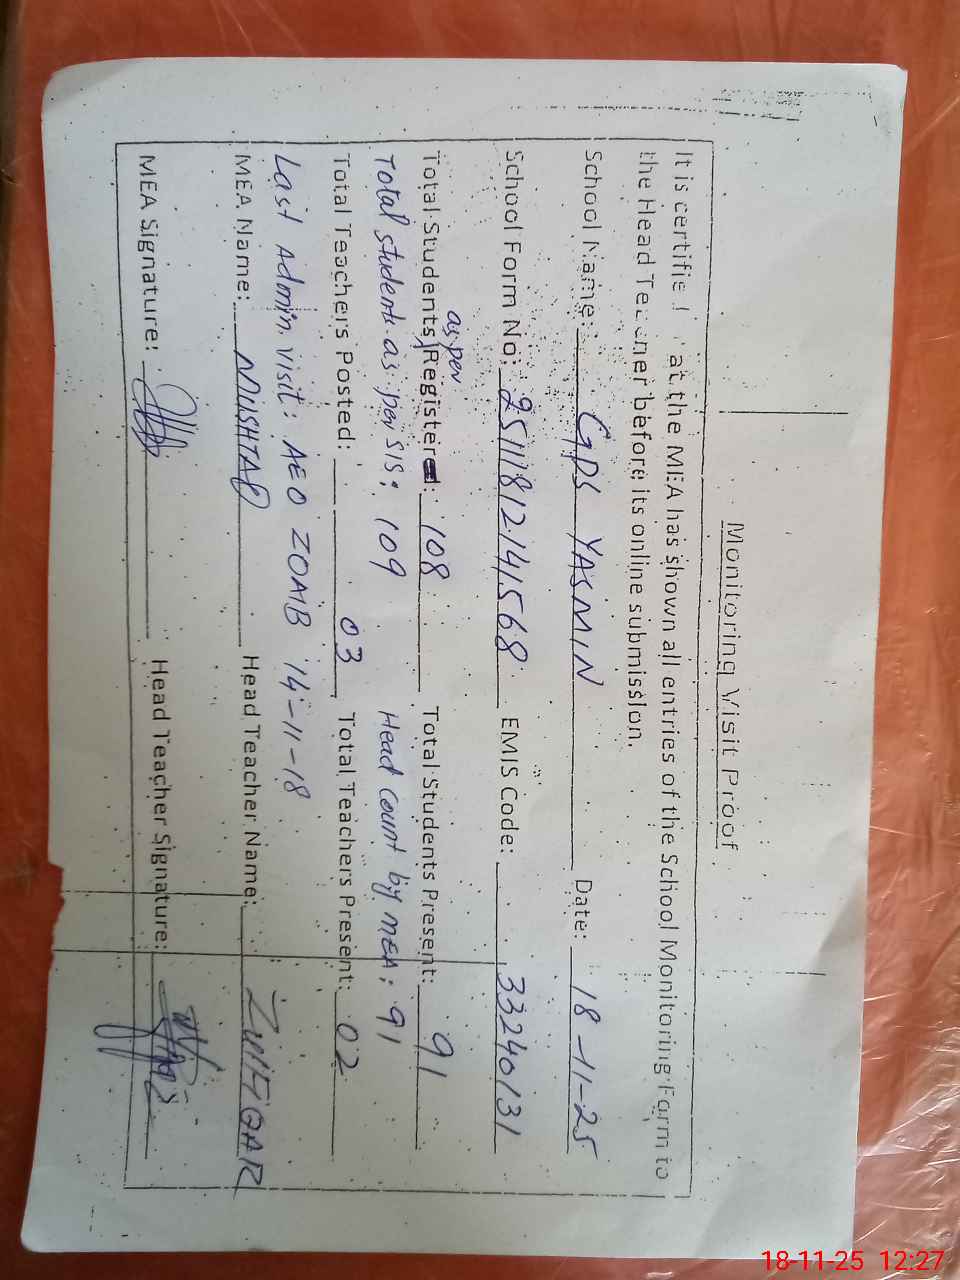 Monitoring Visit Proof
It is certified at the MEA has shown all entries of the School Monitoring Form to
the Head Teacher before its online submission.
School Name: GPS YASMIN Date: 18-11-25
School Form No: 25111812141568 EMIS Code: 33240131
as per
Total Students Registered: 108 Total Students Present: 91
Total students as per SIS: 109 Head count by MEA: 91
Total Teachers Posted: 03 Total Teachers Present: 02
Last Admin visit: AEO ZOAIB 14-11-18
MEA Name: MUSHTAQ Head Teacher Name: ZulFIQAR
MEA Signature: Head Teacher Signature:
18-11-25 12:27